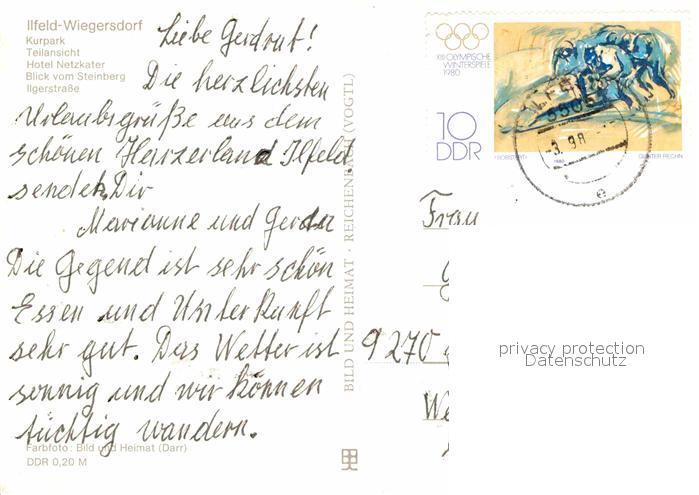 Ilfeld-Wiegersdorf
Kurpark
Teilansicht
Hotel Netzkater
Blick vom Steinberg
Ilgerstraße
Liebe Gerdraut!
Die herzlichsten
Urlaubsgrüße aus dem
schönen Harzerland Ilfeld
senden Dir
Marianne und Gerda
Die Gegend ist sehr schön
Essen und Unterkunft
sehr gut. Das Wetter ist
sonnig und wir können
tüchtig wandern.
Farbfoto: Bild und Heimat (Darr)
DDR 0,20 M
BILD UND HEIMAT · REICHENBACH (VOGTL)
XIII OLYMPISCHE
WINTERSPIELE
1980
10
DDR
1980
GÜNTER RECHN
ILFELD
5506
-3. 9.8
e
Frau
9270
privacy protection
Datenschutz